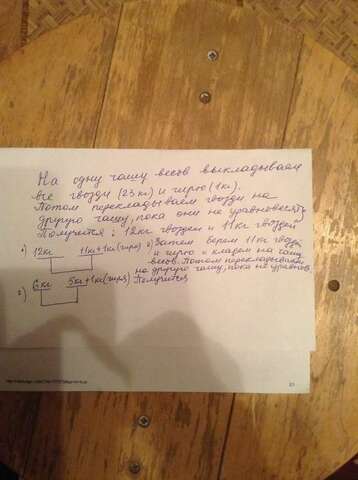 На одну чашу весов выкладываем
все гвозди (23 кг) и гирю (1 кг).
Потом перекладываем гвозди на
другую чашу, пока они не уравновесят.
Получится: 12 кг гвоздей и 11 кг гвоздей
1) 12 кг 11 кг + 1 кг (гиря) 2) Затем берем 11 кг гвозд.
и гирю и кладем на чашу
весов. Потом перекладываем
на другую чашу, пока не уравнов.
2) 6 кг 5 кг + 1 кг (гиря) Получится